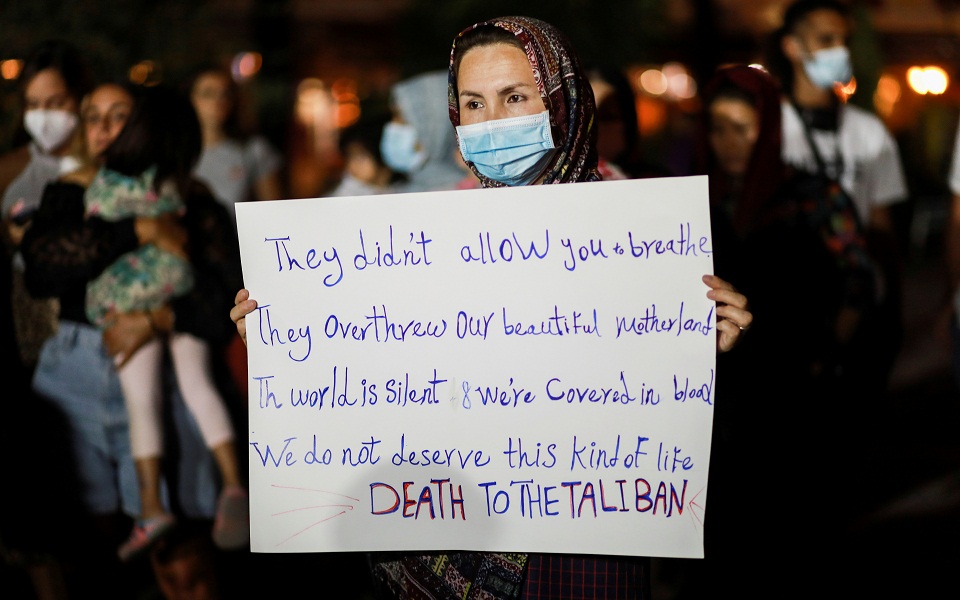 They didn't allow you to breathe
They overthrew our beautiful motherland
Th world is silent & we're covered in blood
We do not deserve this kind of life
DEATH TO THE TALIBAN